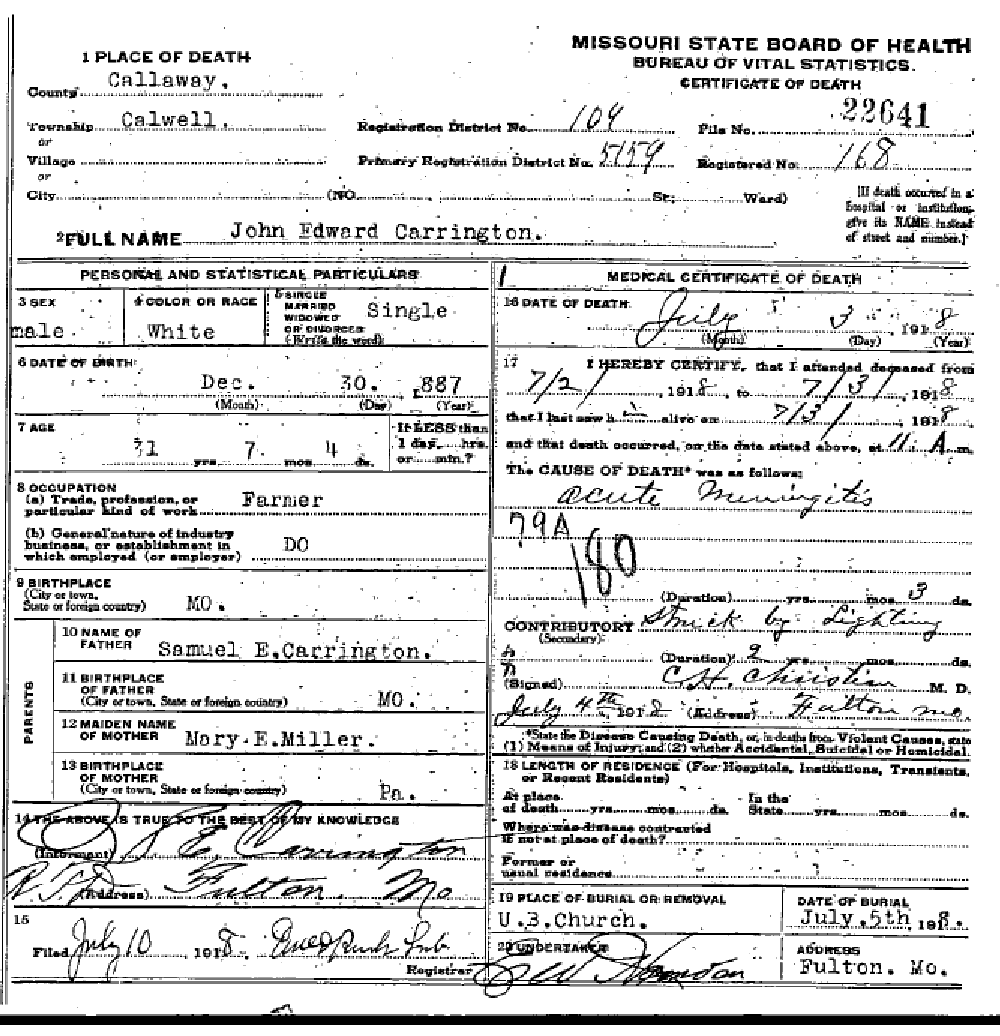 MISSOURI STATE BOARD OF HEALTH
BUREAU OF VITAL STATISTICS.
CERTIFICATE OF DEATH
1 PLACE OF DEATH
County Callaway.
Township Calwell. Registration District No. 104 File No. 22641
or
Village Primary Registration District No. 5159 Registered No. 168
or
City (NO. St; Ward)
[If death occurred in a
hospital or institution,
give its NAME instead
of street and number.]
2 FULL NAME John Edward Carrington.
PERSONAL AND STATISTICAL PARTICULARS
3 SEX
male
4 COLOR OR RACE
White
5 SINGLE
MARRIED
WIDOWED
OR DIVORCED
(Write the word)
Single
6 DATE OF BIRTH
Dec. 30. 887
(Month) (Day) (Year)
7 AGE
31 yrs. 7. mos. 4 ds.
If LESS than
1 day, hrs.
or min.?
8 OCCUPATION
(a) Trade, profession, or
particular kind of work Farmer
(b) General nature of industry
business, or establishment in
which employed (or employer) DO
9 BIRTHPLACE
(City or town,
State or foreign country) MO.
PARENTS
10 NAME OF
FATHER Samuel E.Carrington.
11 BIRTHPLACE
OF FATHER
(City or town, State or foreign country) MO.
12 MAIDEN NAME
OF MOTHER Mary.E.Miller.
13 BIRTHPLACE
OF MOTHER
(City or town, State or foreign country) Pa.
14 THE ABOVE IS TRUE TO THE BEST OF MY KNOWLEDGE
(Informant) S E Carrington
(Address) R.F.D Fulton Mo
15
Filed July 10 1918
Registrar
MEDICAL CERTIFICATE OF DEATH
16 DATE OF DEATH
July 3 1918
(Month) (Day) (Year)
17 I HEREBY CERTIFY, that I attended deceased from
7/2/ 1918, to 7/3/ 1918
that I last saw him alive on 7/3/ 1918
and that death occurred, on the date stated above, at 11. A m.
The CAUSE OF DEATH* was as follows:
acute Meningitis
79A
180
(Duration) yrs. mos. 3 ds.
CONTRIBUTORY Struck by Lighting
(Secondary)
(Duration) 2 yrs. mos. ds.
(Signed) C.H. Christian M. D.
July 4th 1918 (Address) Fulton Mo.
*State the Disease Causing Death, or, in deaths from Violent Causes, state
(1) Means of Injury; and (2) whether Accidental, Suicidal or Homicidal.
18 LENGTH OF RESIDENCE (For Hospitals, Institutions, Transients,
or Recent Residents)
At place
of death yrs. mos. ds.
In the
State yrs. mos. ds.
Where was disease contracted
if not at place of death?
Former or
usual residence
19 PLACE OF BURIAL OR REMOVAL
U.B.Church.
DATE OF BURIAL
July.5th 1918.
20 UNDERTAKER
ADDRESS
Fulton. Mo.